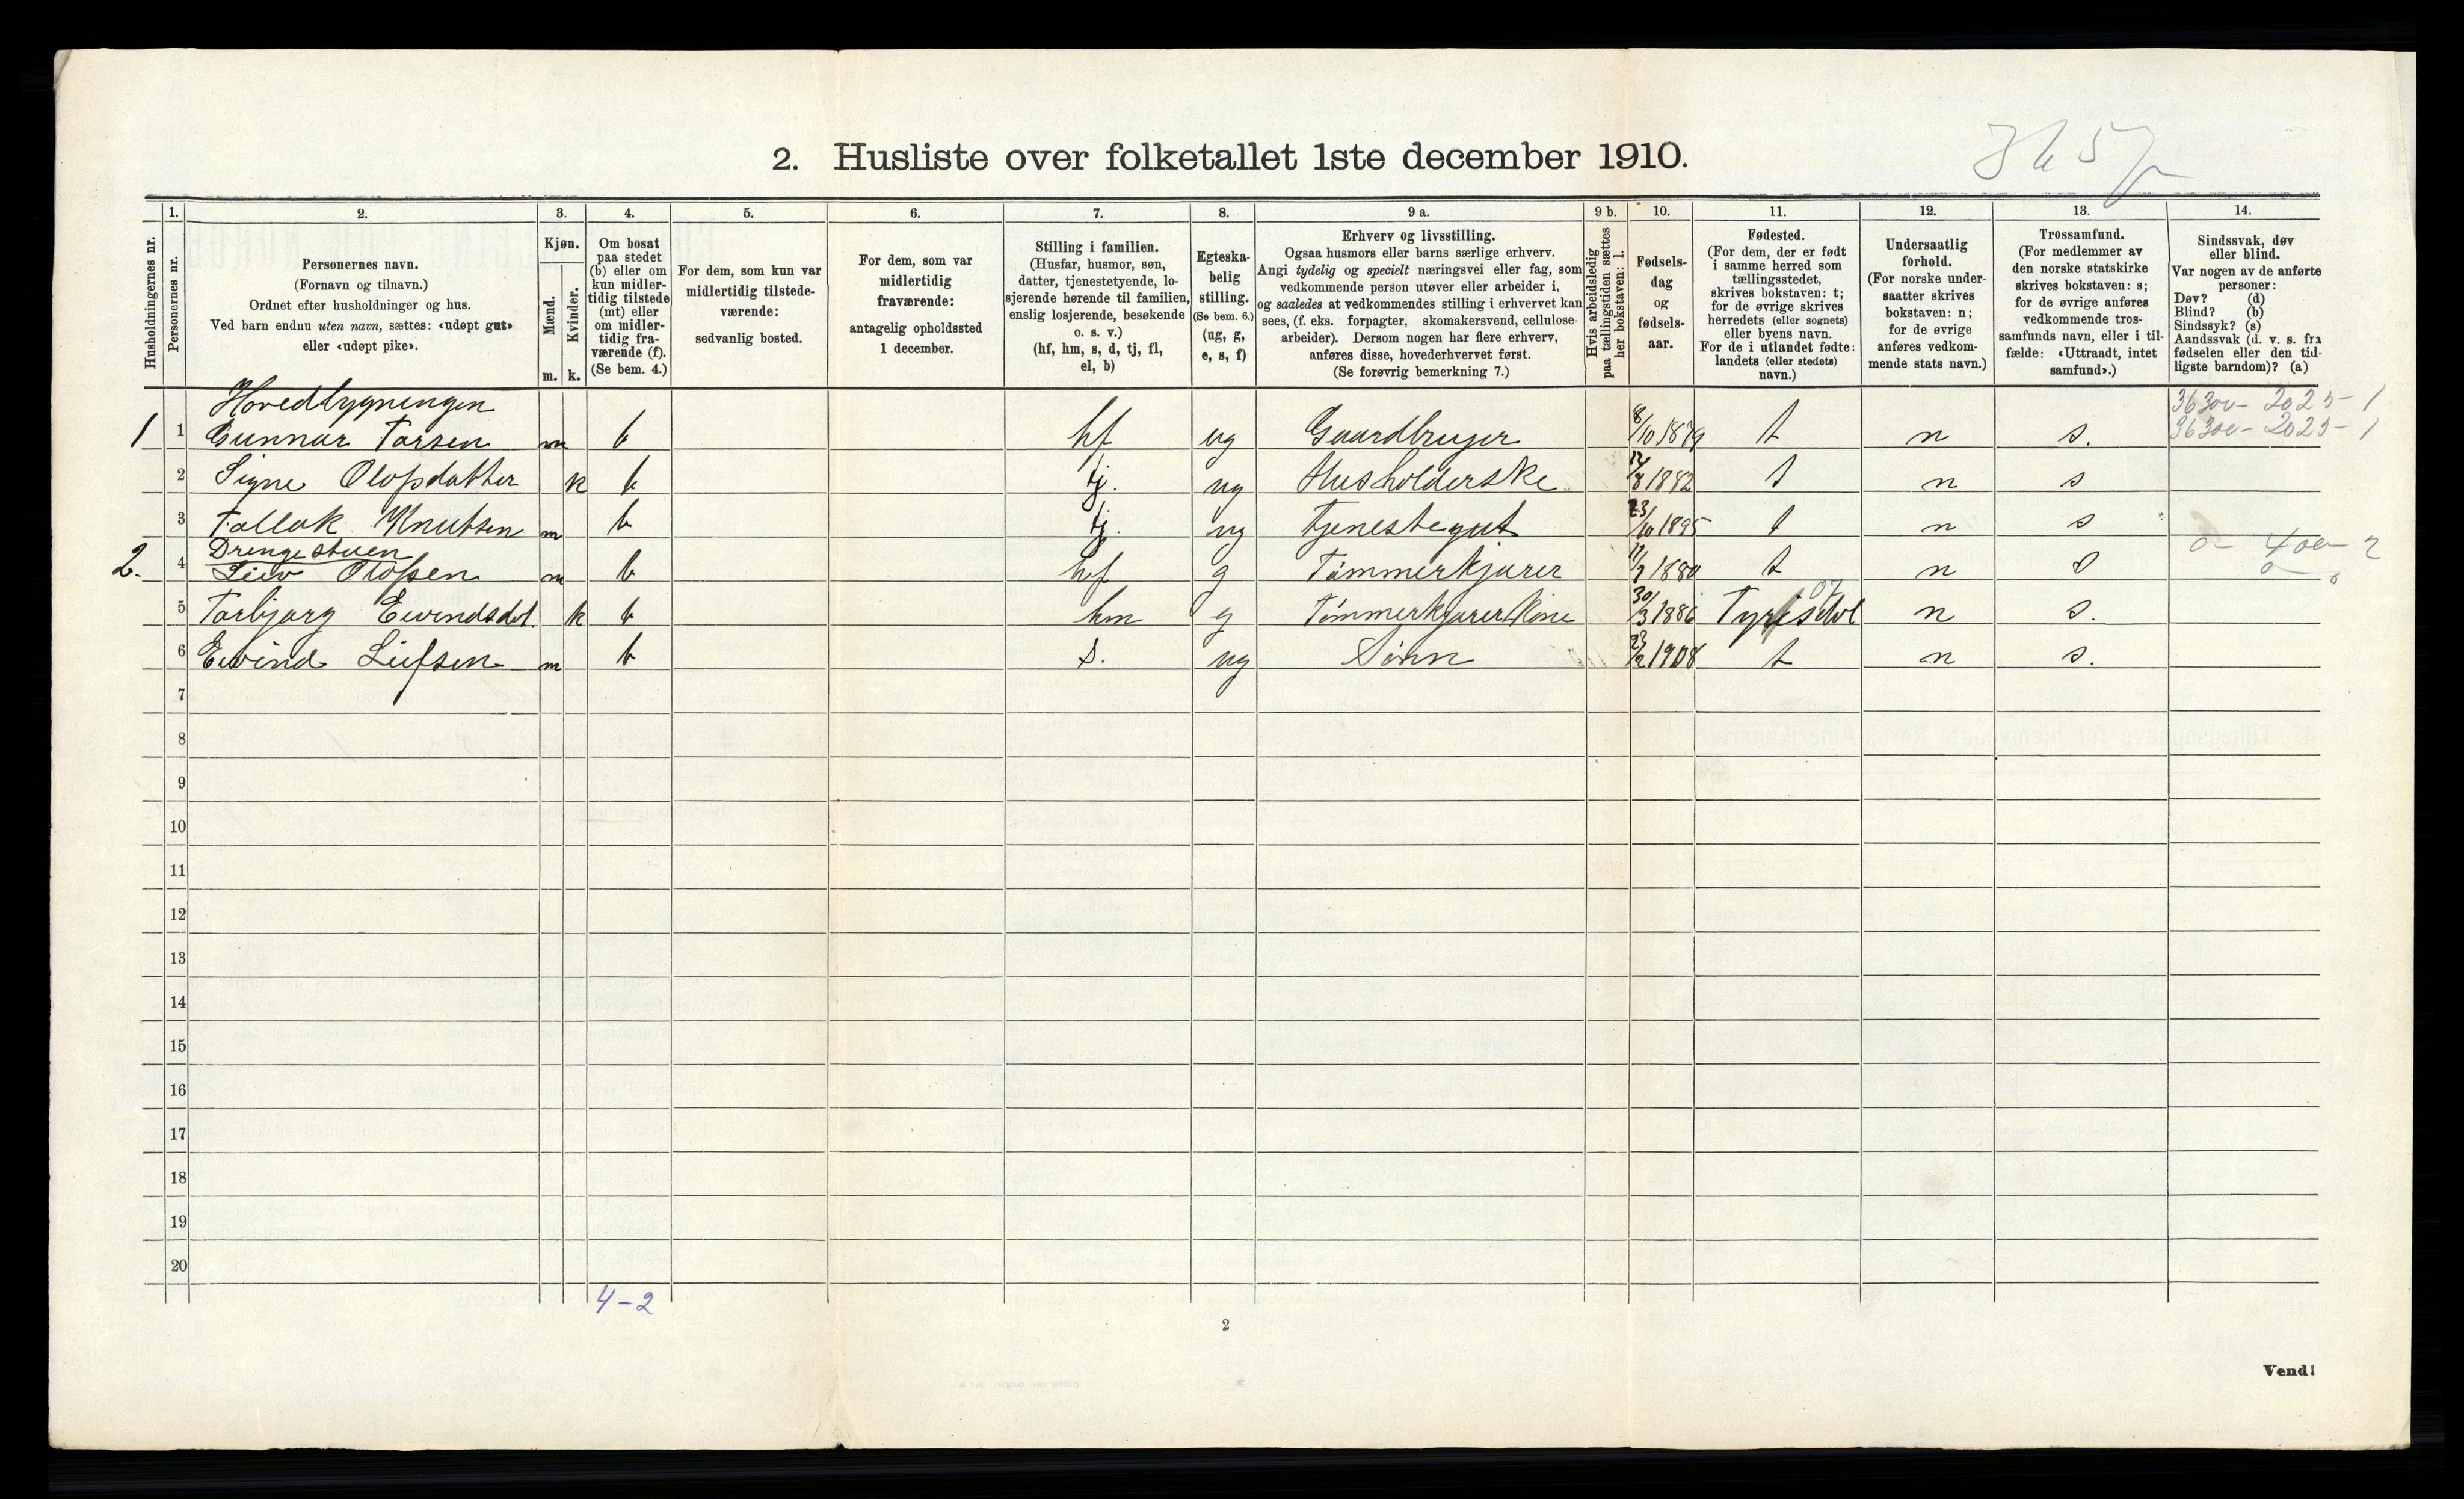 2. Husliste over folketallet 1ste december 1910.
Husholdningernes nr.
1.
Personernes nr.
2.
Personernes navn.
(Fornavn og tilnavn.)
Ordnet efter husholdninger og hus.
Ved barn endnu uten navn, sættes: «udøpt gut»
eller «udøpt pike».
3.
Kjøn.
Mænd.
Kvinder.
m. k.
4.
Om bosat
paa stedet
(b) eller om
kun midler-
tidig tilstede
(mt) eller
om midler-
tidig fra-
værende (f).
(Se bem. 4.)
5.
For dem, som kun var
midlertidig tilstede-
værende:
sedvanlig bosted.
6.
For dem, som var
midlertidig
fraværende:
antagelig opholdssted
1 december.
7.
Stilling i familien.
(Husfar, husmor, søn,
datter, tjenestetyende, lo-
sjerende hørende til familien,
enslig losjerende, besøkende
o. s. v.)
(hf, hm, s, d, tj, fl,
el, b)
8.
Egteska-
belig
stilling.
(Se bem. 6.)
(ug, g,
e, s, f)
9 a.
Erhverv og livsstilling.
Ogsaa husmors eller barns særlige erhverv.
Angi tydelig og specielt næringsvei eller fag, som
vedkommende person utøver eller arbeider i,
og saaledes at vedkommendes stilling i erhvervet kan
sees, (f. eks. forpagter, skomakersvend, cellulose-
arbeider). Dersom nogen har flere erhverv,
anføres disse, hovederhvervet først.
(Se forøvrig bemerkning 7.)
9 b.
Hvis arbeidsledig
paa tællingstiden sættes
her bokstaven: l.
10.
Fødsels-
dag
og
fødsels-
aar.
11.
Fødested.
(For dem, der er født
i samme herred som
tællingsstedet,
skrives bokstaven: t;
for de øvrige skrives
herredets (eller sognets)
eller byens navn.
For de i utlandet fødte:
landets (eller stedets)
navn.)
12.
Undersaatlig
forhold.
(For norske under-
saatter skrives
bokstaven: n;
for de øvrige
anføres vedkom-
mende stats navn.)
13.
Trossamfund.
(For medlemmer av
den norske statskirke
skrives bokstaven: s;
for de øvrige anføres
vedkommende tros-
samfunds navn, eller i til-
fælde: «Uttraadt, intet
samfund».)
14.
Sindssvak, døv
eller blind.
Var nogen av de anførte
personer:
Døv? (d)
Blind? (b)
Sindssyk? (s)
Aandssvak (d. v. s. fra
fødselen eller den tid-
ligste barndom)? (a)
Hovedbygningen
1 1 Gunnar Tarsen m b hf ug Gaardbruger 8/10 1879 t n s.
36300 - 2025 - 1
36300 - 2025 - 1
2 Signe Olofsdatter k b tj. ug Husholderske 12/8 1882 t n s
3 Tallak Knutsen m b tj. ug Tjenestegut 23/10 1895 t n s
Drengestuen
2. 4 Leiv Olofsen m b hf g Tømmerkjører 1880 t n s
0 - 400 - 2
5 Torbjørg Eivindsdot. k b hm g Tømmerkjørers Kone 30/3 1886 Tyrisdal n s.
6 Eivind Leifsen m b s. ug Sønn 1908 t n s.
7
8
9
10
11
12
13
14
15
16
17
18
19
20
4-2
2
Vend!